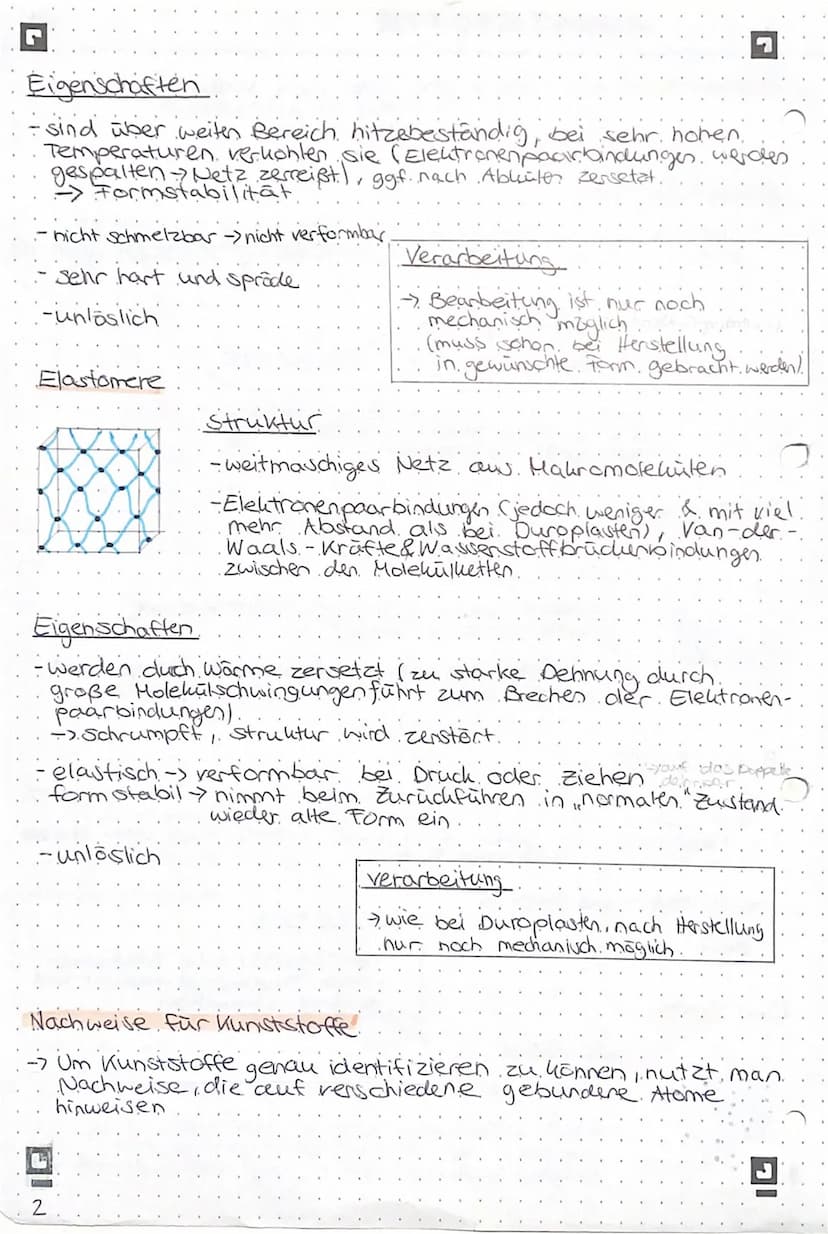 Eigenschaften
- sind über weiten Bereich hitzebeständig, bei sehr hohen
Temperaturen verkohlen sie (Elektronenpaarbindungen werden
gespalten → Netz zerreißt), ggf. nach Abkühlen zersetzt
→ Formstabilität
- nicht schmelzbar → nicht verformbar
- sehr hart und spröde
- unlöslich
Verarbeitung
→ Bearbeitung ist nur noch
mechanisch möglich
(muss schon bei Herstellung
in gewünschte Form gebracht werden)
Elastomere
Struktur
- weitmaschiges Netz aus Makromolekülen
- Elektronenpaarbindungen (jedoch weniger & mit viel
mehr Abstand als bei Duroplasten), Van-der-
Waals-Kräfte & Wasserstoffbrückenbindungen
zwischen den Molekülketten
Eigenschaften
- werden duch Wärme zersetzt (zu starke Dehnung durch
große Molekülschwingungen führt zum Brechen der Elektronen-
paarbindungen)
→ schrumpft, Struktur wird zerstört
- elastisch → verformbar bei Druck oder Ziehen → auf das Doppelte
dehnbar
formstabil → nimmt beim Zurückführen in „normalen" Zustand
wieder alte Form ein
- unlöslich
Verarbeitung
→ wie bei Duroplasten, nach Herstellung
nur noch mechanisch möglich
Nachweise für Kunststoffe
→ Um Kunststoffe genau identifizieren zu können, nutzt man
Nachweise, die auf verschiedene gebundene Atome
hinweisen
2